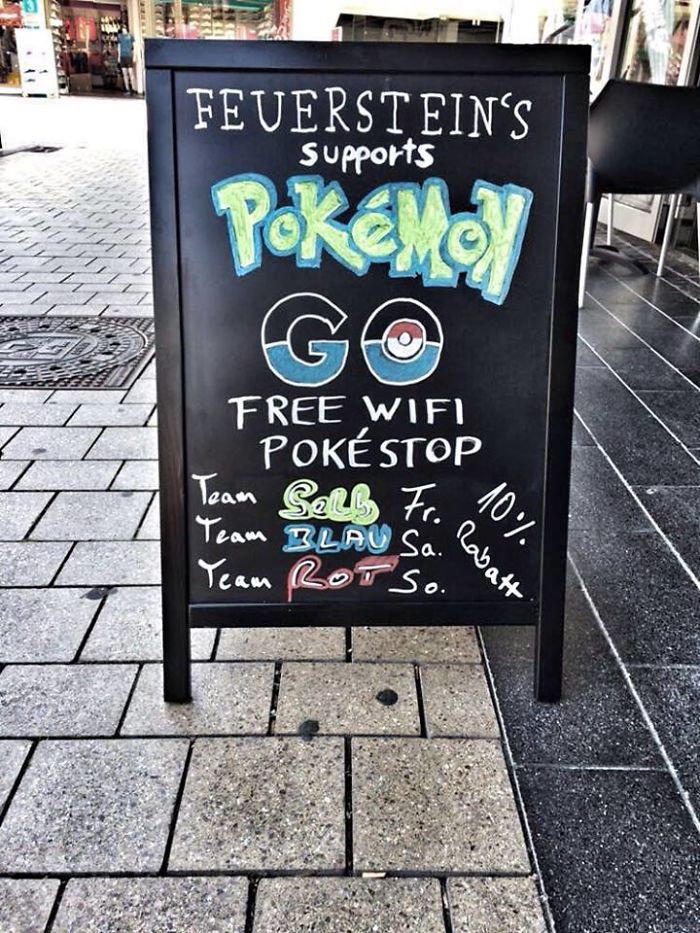 FEUERSTEIN'S
supports
POKéMON
GO
FREE WIFI
POKÉSTOP
Team Gelb Fr.
Team BLAU Sa.
Team ROT So.
10%
Rabatt